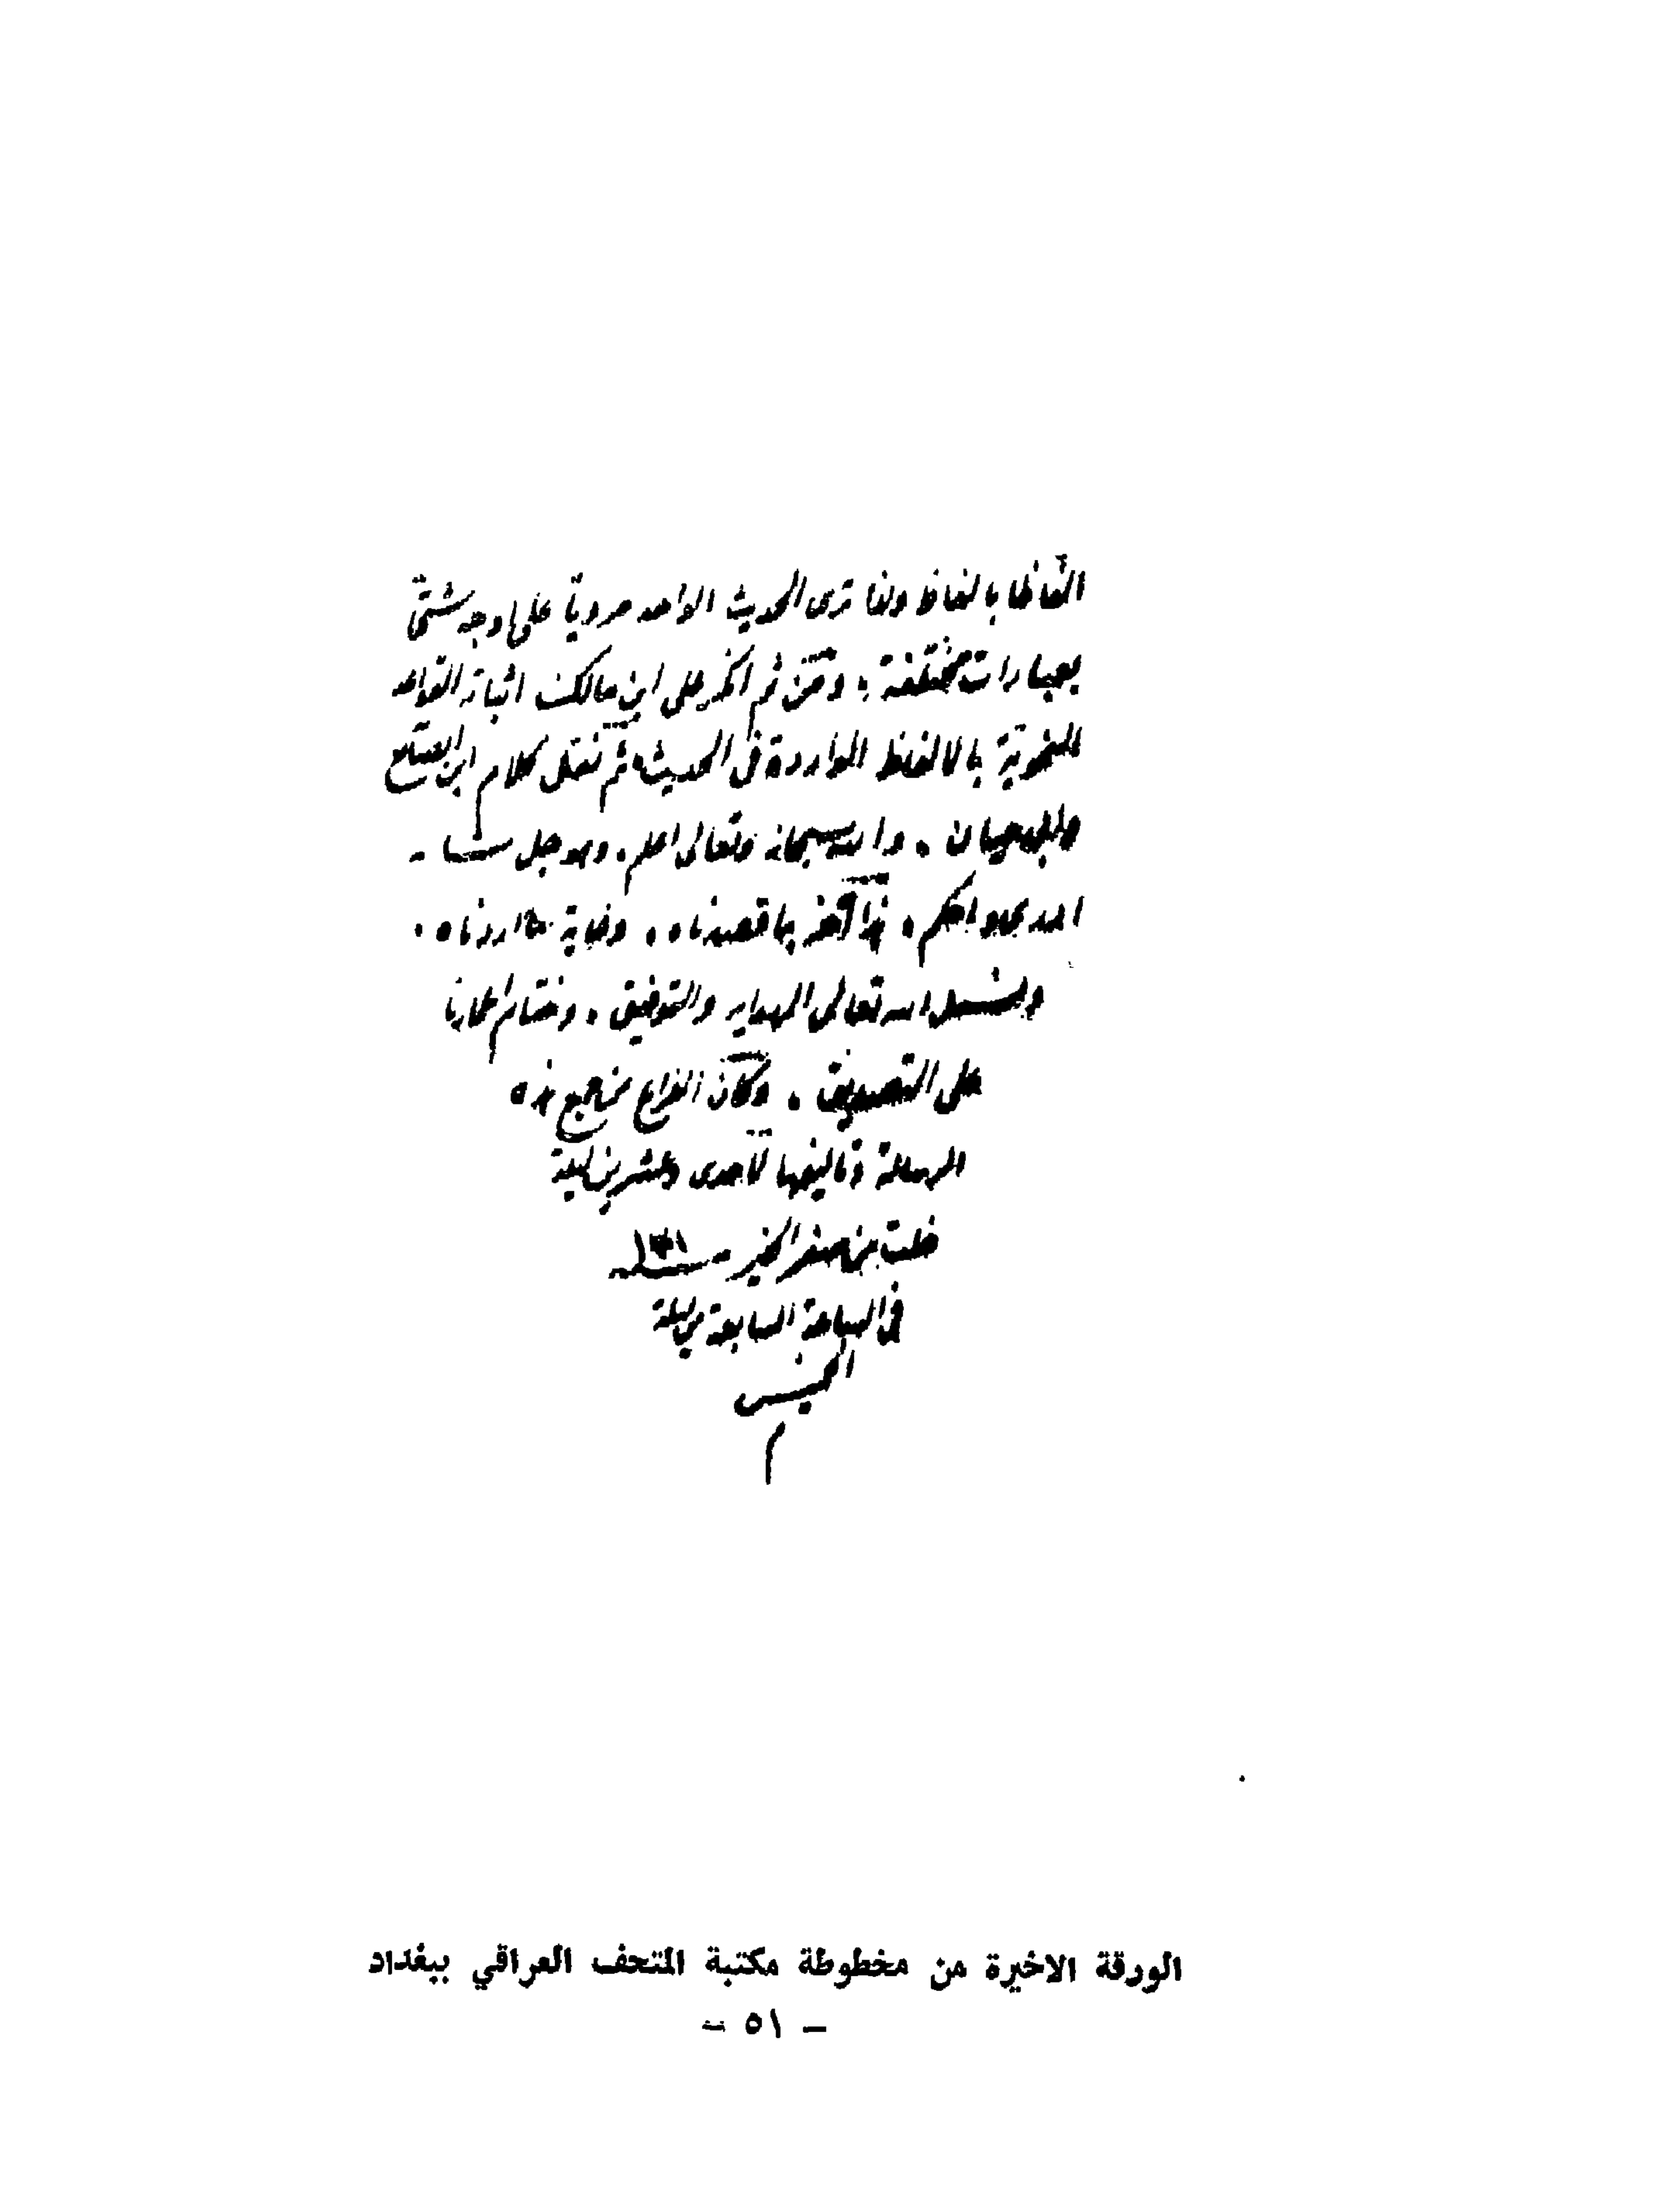 الفاظا بالفاظ ولذا ترى الحديث الواحد مرويا على اوجه شتى
بعبارات مختلفة . ومن ثم انكر على ابن مالك اثباته القواعد
النحوية بالالفاظ الواردة في الحديث ثم نقل كلام ابن الضائع
وابي حيان . والله سبحانه وتعالى اعلم . وهو جل شانه
احكم . هذا آخر ما قصدناه . وغاية ما اردناه .
ونسئل الله تعالى الهداية والتوفيق . وختام اعمارنا
على التصديق . وكان الفراغ من جمع هذه
الرسالة وتاليفها لاحدى وعشرين ليلة
خلت من صفر الخير سنة ١٣٠١
في الساعة السابعة من ليلة
الخميس
م
الورقة الاخيرة من مخطوطة مكتبة المتحف العراقي ببغداد
– ٥١ –